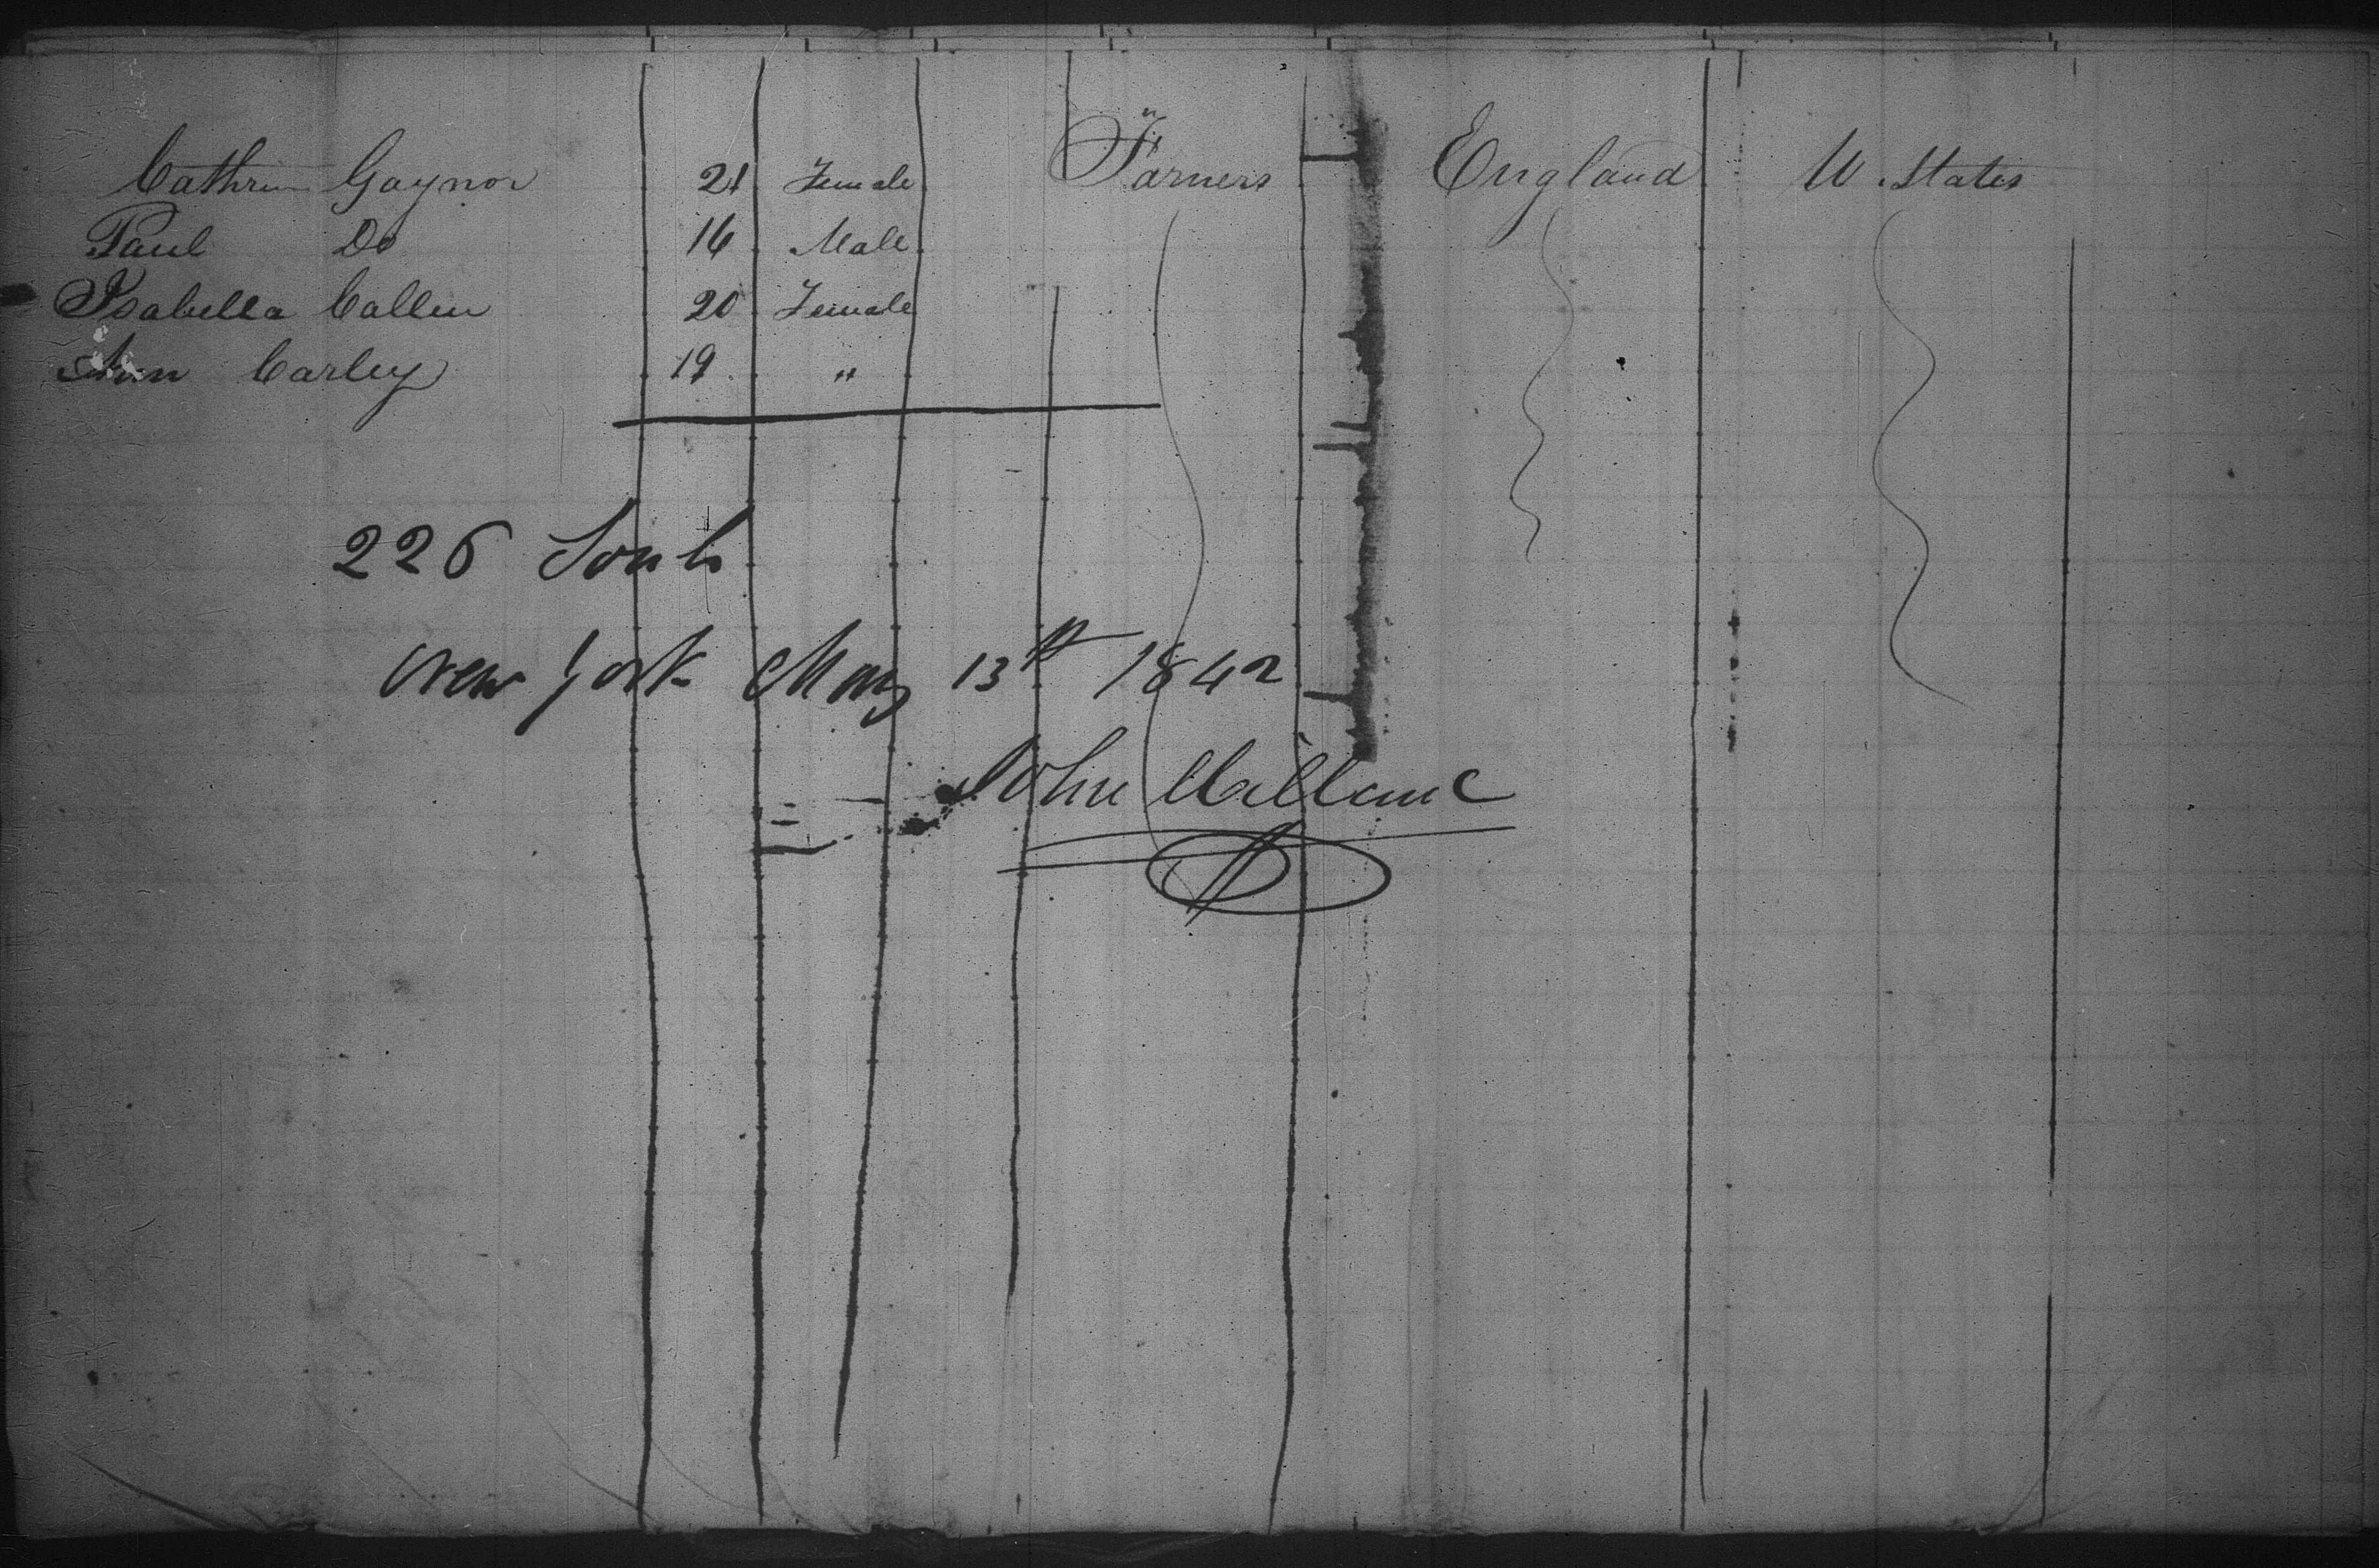 Cathrin Gaynor 21 Female Farmers England U. States
Paul Do 16 Male
Isabella Callen 20 Female
Ann Carley 19 "
226 Souls
New York May 13th 1842
John